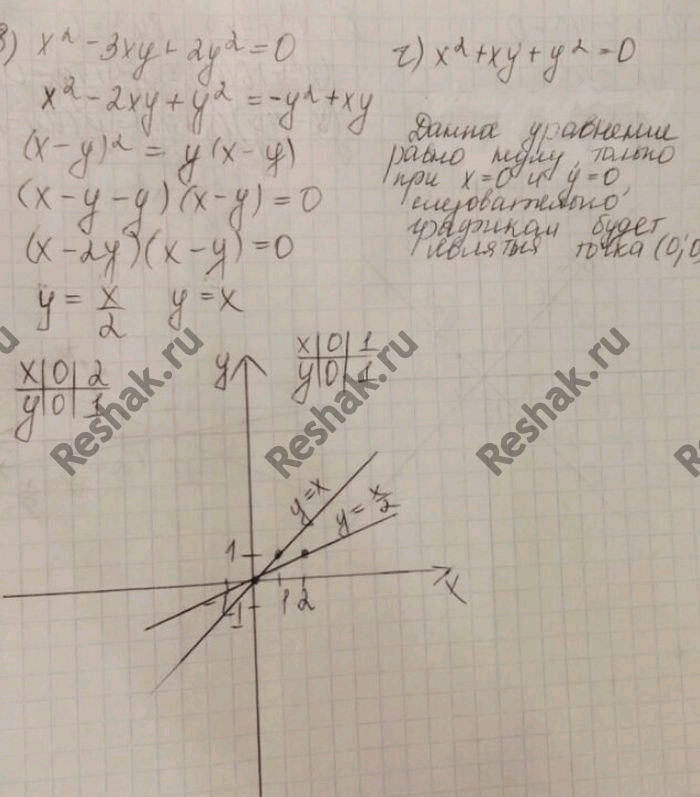 в) x² - 3xy + 2y² = 0
x² - 2xy + y² = -y² + xy
(x - y)² = y(x - y)
(x - y - y)(x - y) = 0
(x - 2y)(x - y) = 0
y = x/2 y = x
x|0|2
y|0|1
г) x² + xy + y² = 0
Данное уравнение
равно нулю, только
при x=0 и y=0,
следовательно
графиком будет
являться точка (0;0
x|0|1
y|0|1
y
y=x
y=x/2
1
-1
1 2
-1
x
Reshak.ru
Reshak.ru
Reshak.ru